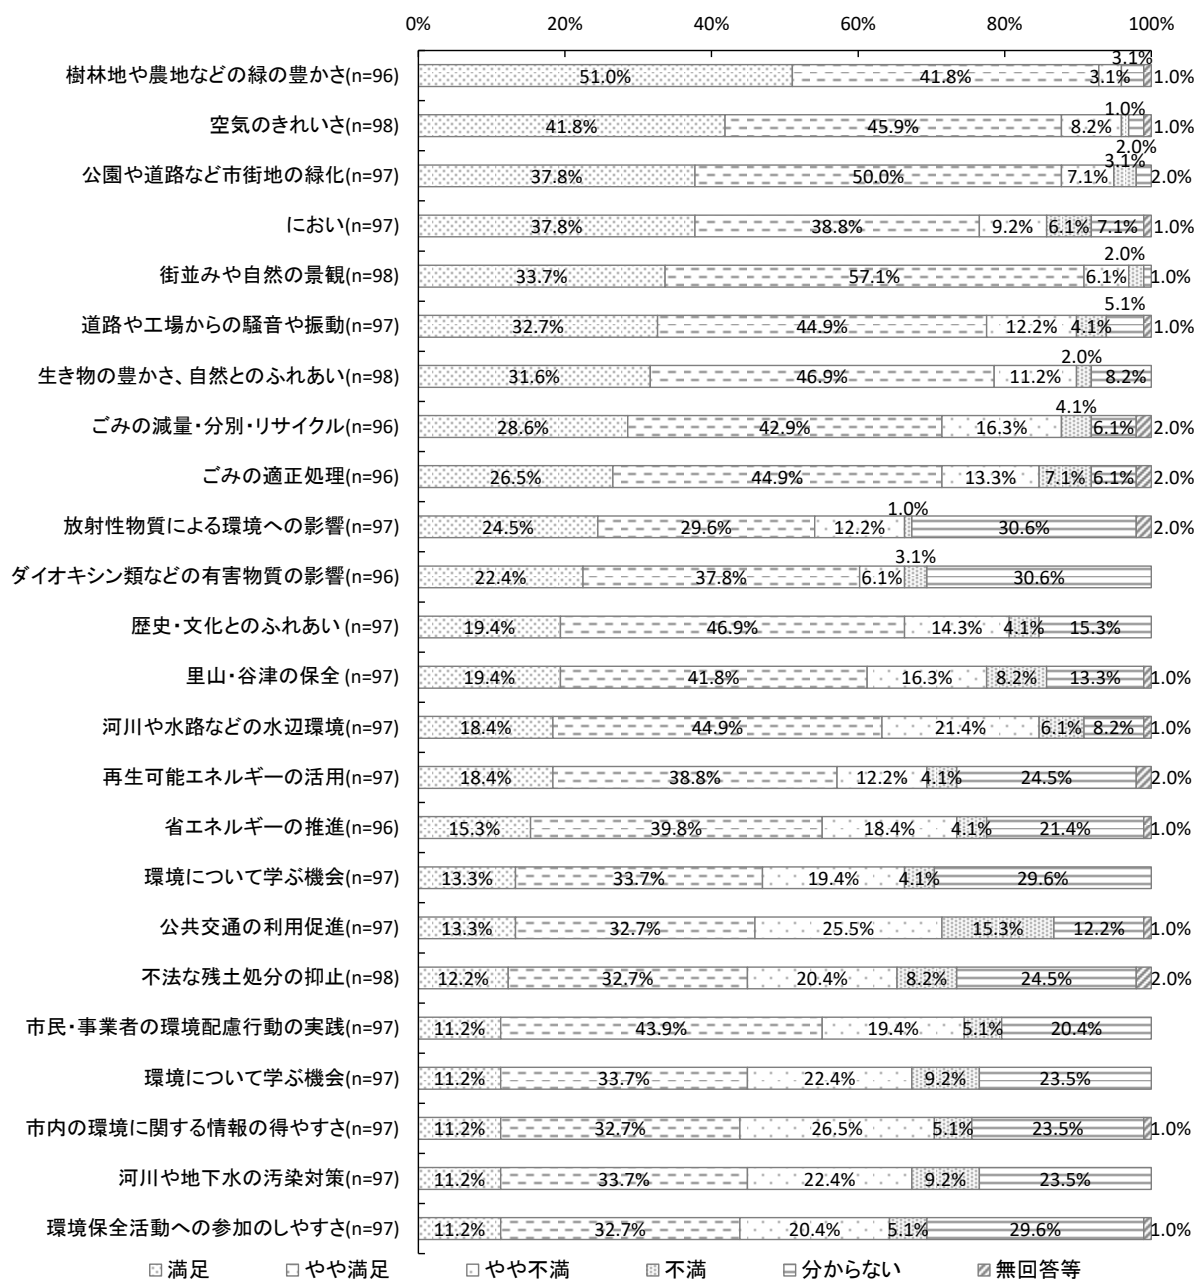 0% 20% 40% 60% 80% 100%
樹林地や農地などの緑の豊かさ(n=96) 51.0% 41.8% 3.1% 3.1% 1.0%
空気のきれいさ(n=98) 41.8% 45.9% 8.2% 1.0% 2.0% 1.0%
公園や道路など市街地の緑化(n=97) 37.8% 50.0% 7.1% 3.1% 2.0%
におい(n=97) 37.8% 38.8% 9.2% 6.1% 7.1% 1.0%
街並みや自然の景観(n=98) 33.7% 57.1% 6.1% 2.0% 1.0%
道路や工場からの騒音や振動(n=97) 32.7% 44.9% 12.2% 4.1% 5.1% 1.0%
生き物の豊かさ、自然とのふれあい(n=98) 31.6% 46.9% 11.2% 2.0% 8.2%
ごみの減量・分別・リサイクル(n=96) 28.6% 42.9% 16.3% 4.1% 6.1% 2.0%
ごみの適正処理(n=96) 26.5% 44.9% 13.3% 7.1% 6.1% 2.0%
放射性物質による環境への影響(n=97) 24.5% 29.6% 12.2% 1.0% 30.6% 2.0%
ダイオキシン類などの有害物質の影響(n=96) 22.4% 37.8% 6.1% 3.1% 30.6%
歴史・文化とのふれあい(n=97) 19.4% 46.9% 14.3% 4.1% 15.3%
里山・谷津の保全(n=97) 19.4% 41.8% 16.3% 8.2% 13.3% 1.0%
河川や水路などの水辺環境(n=97) 18.4% 44.9% 21.4% 6.1% 8.2% 1.0%
再生可能エネルギーの活用(n=97) 18.4% 38.8% 12.2% 4.1% 24.5% 2.0%
省エネルギーの推進(n=96) 15.3% 39.8% 18.4% 4.1% 21.4% 1.0%
環境について学ぶ機会(n=97) 13.3% 33.7% 19.4% 4.1% 29.6%
公共交通の利用促進(n=97) 13.3% 32.7% 25.5% 15.3% 12.2% 1.0%
不法な残土処分の抑止(n=98) 12.2% 32.7% 20.4% 8.2% 24.5% 2.0%
市民・事業者の環境配慮行動の実践(n=97) 11.2% 43.9% 19.4% 5.1% 20.4%
環境について学ぶ機会(n=97) 11.2% 33.7% 22.4% 9.2% 23.5%
市内の環境に関する情報の得やすさ(n=97) 11.2% 32.7% 26.5% 5.1% 23.5% 1.0%
河川や地下水の汚染対策(n=97) 11.2% 33.7% 22.4% 9.2% 23.5%
環境保全活動への参加のしやすさ(n=97) 11.2% 32.7% 20.4% 5.1% 29.6% 1.0%
満足 やや満足 やや不満 不満 分からない 無回答等